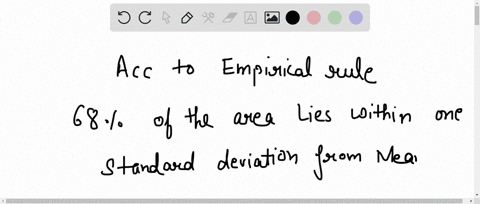 Acc to Empirical rule
68% of the area lies within one
standard deviation from Mea